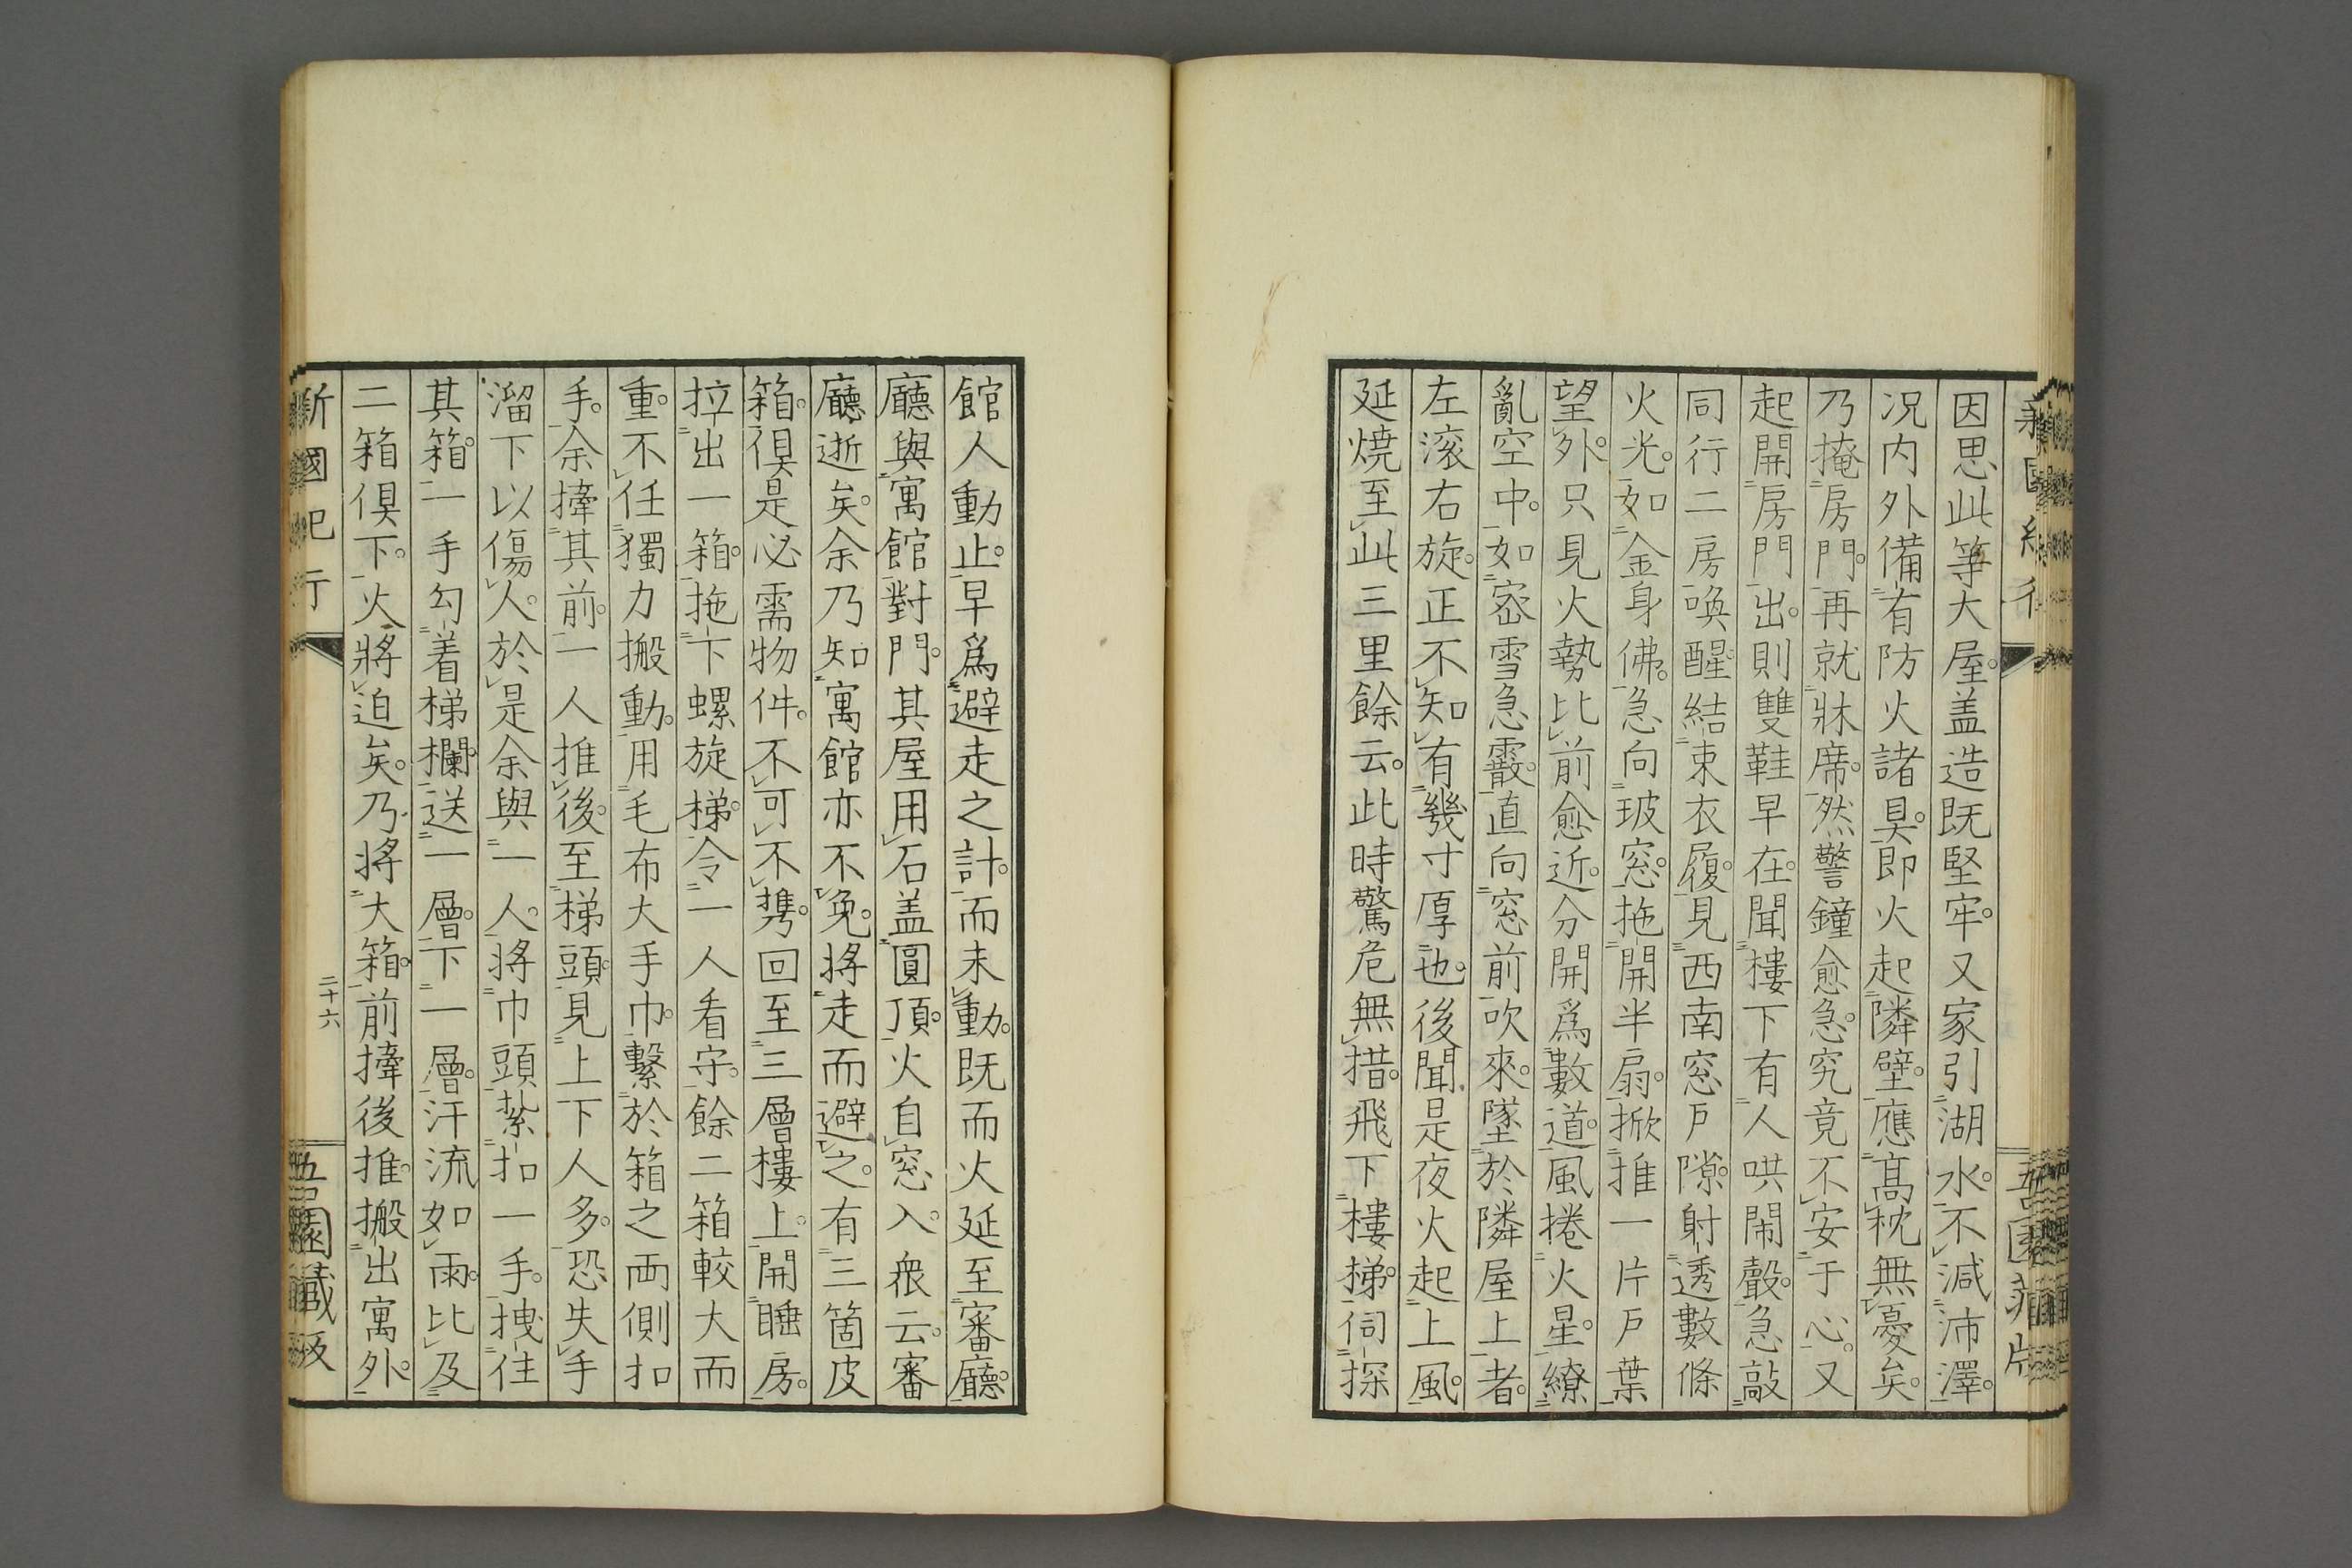 因思此等大屋。盖造既堅牢。又家引湖水。不減沛澤。
况内外備有防火諸具。即火起隣壁。應高枕無憂矣。
乃掩房門。再就牀席。然警鐘愈急。究竟不安于心。又
起開房門出。則雙鞋早在。聞樓下有人哄鬧聲。急敲
同行二房喚醒。結束衣履。見西南窓戶隙。射透數條
火光。如金身佛。急向玻窓。拖開半扇。掀推一片戶葉
望外。只見火勢比前愈近。分開爲數道。風捲火星。繚
亂空中。如宻雪急霰。直向窓前吹來。墜於隣屋上者。
左滚右旋。正不知有幾寸厚也。後聞是夜火起上風。
延燒至此三里餘云。此時驚危無措。飛下樓梯。伺探
館人動止。早爲避走之計。而未動。既而火延至審廳。
廳與寓館對門。其屋用石盖圓頂。火自窓入。衆云。審
廳逝矣。余乃知寓館亦不免。將走而避之。有三箇皮
箱。俱是必需物件。不可不携。回至三層樓上。開睡房。
拉出一箱。拖下螺旋梯。令一人看守。餘二箱較大而
重。不任獨力搬動。用毛布大手巾。繫於箱之兩側扣
手。余擡其前。一人推後。至梯頭。見上下人多。恐失手
溜下以傷人。於是余與一人。將巾頭紮扣一手。拽住
其箱。一手勾着梯欄。送一層。下一層。汗流如雨。比及
二箱俱下。火將迫矣。乃將大箱。前擡後推。搬出寓外。
新國紀行
二十六
吾園藏板